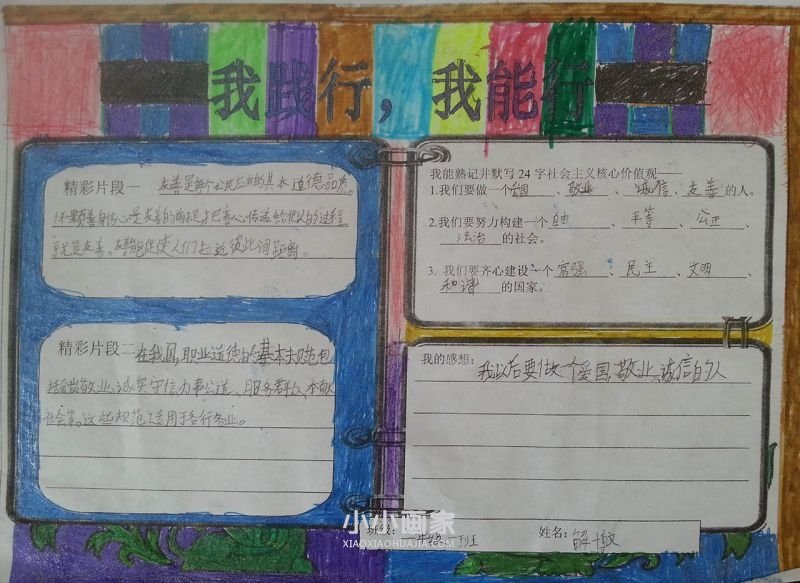 我践行，我能行
精彩片段一 友善是每个公民应有的基本道德品质。
怀颗善良的心是友善的前提,把善心传递给他人的过程
就是友善。友善能促使人们拉近彼此间距离。
精彩片段二 在我国,职业道德的基本规范包
括爱岗敬业、诚实守信、办事公道、服务群众、奉献
社会等。这些规范适用于各行各业。
我能熟记并默写24字社会主义核心价值观——
1.我们要做一个爱国、敬业、诚信、友善的人。
2.我们要努力构建一个自由、平等、公正、
法治的社会。
3. 我们要齐心建设一个富强、民主、文明、
和谐的国家。
我的感想:
我以后要做一个爱国,敬业,诚信的人
小小画家
XIAOXIAOHUAJIA.COM
班级: 班
姓名: 解